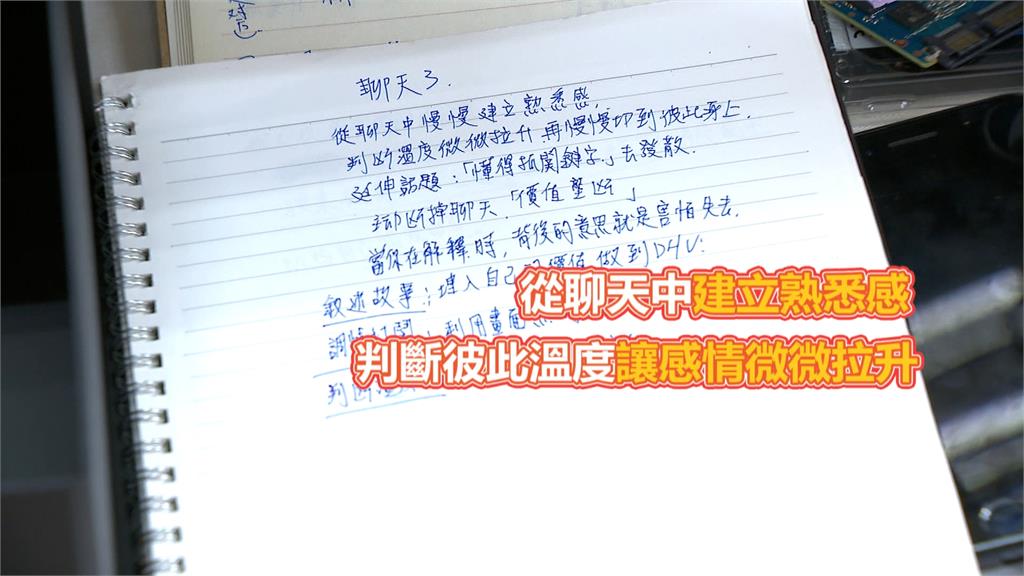 聊天3.
從聊天中慢慢建立熟悉感,
判斷溫度微微拉升 再慢慢切到彼此身上.
延伸話題:「懂得抓関鍵字」去發散.
斷掉聊天.「價值壟斷」
當你在解釋時,背後的意思就是害怕失去.
敘述故事:埋入自己 價值 做到DHV:
利用畫面
從聊天中建立熟悉感
判斷彼此溫度讓感情微微拉升